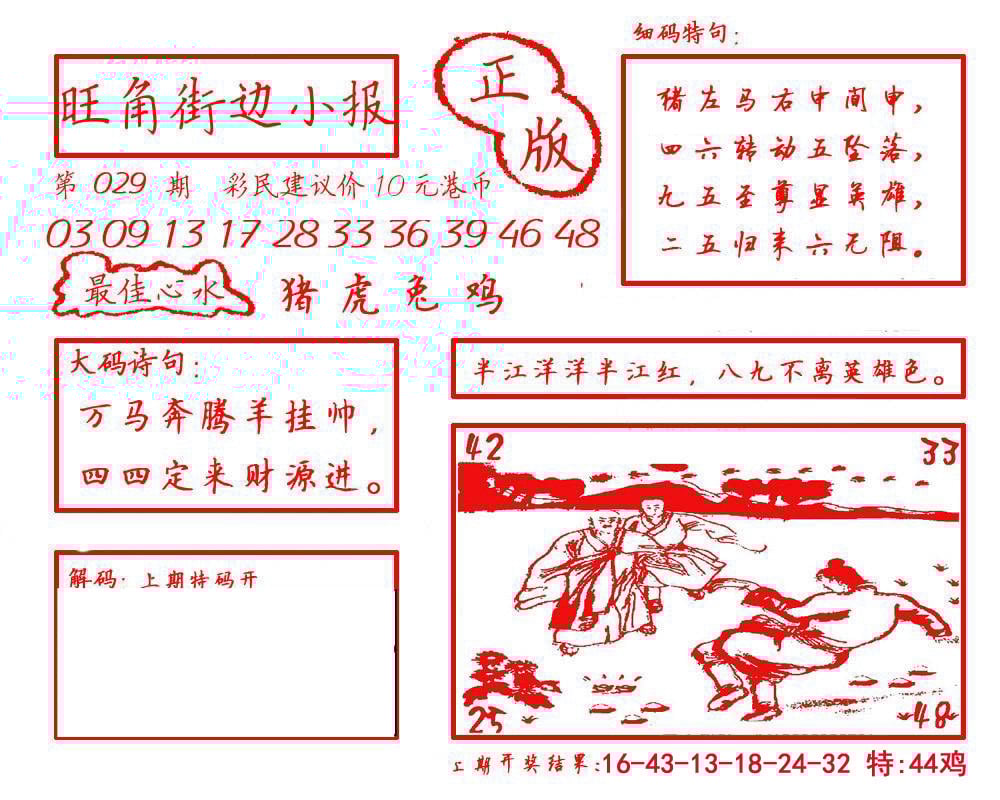 旺角街边小报
正版
第 029 期 彩民建议价 10 元港币
03 09 13 17 28 33 36 39 46 48
最佳心水 猪 虎 兔 鸡
细码特句：
猪左马右中间申，
四六转动五坠落，
九五至尊显英雄，
二五归来六无阻。
大码诗句：
万马奔腾羊挂帅，
四四定来财源进。
半江洋洋半江红，八九不离英雄色。
解码·上期特码开
42
33
25
48
上期开奖结果：16-43-13-18-24-32 特:44鸡